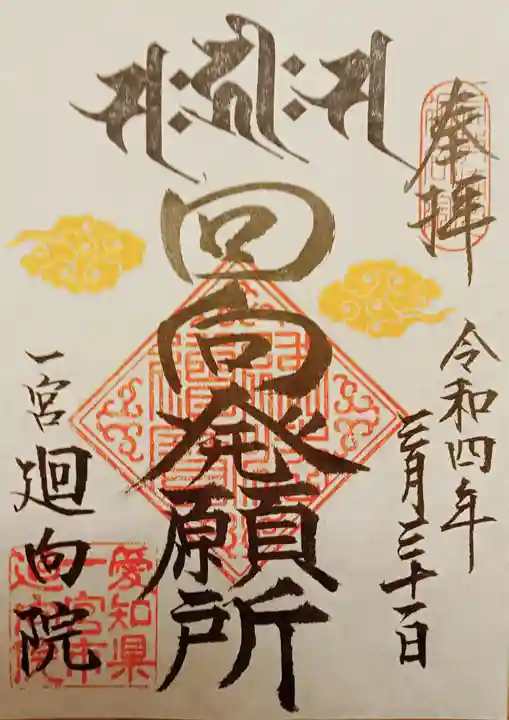 奉拝
令和四年
三月三十一日
回向発願所
一宮 廻向院
愛知県
一宮市
廻向院